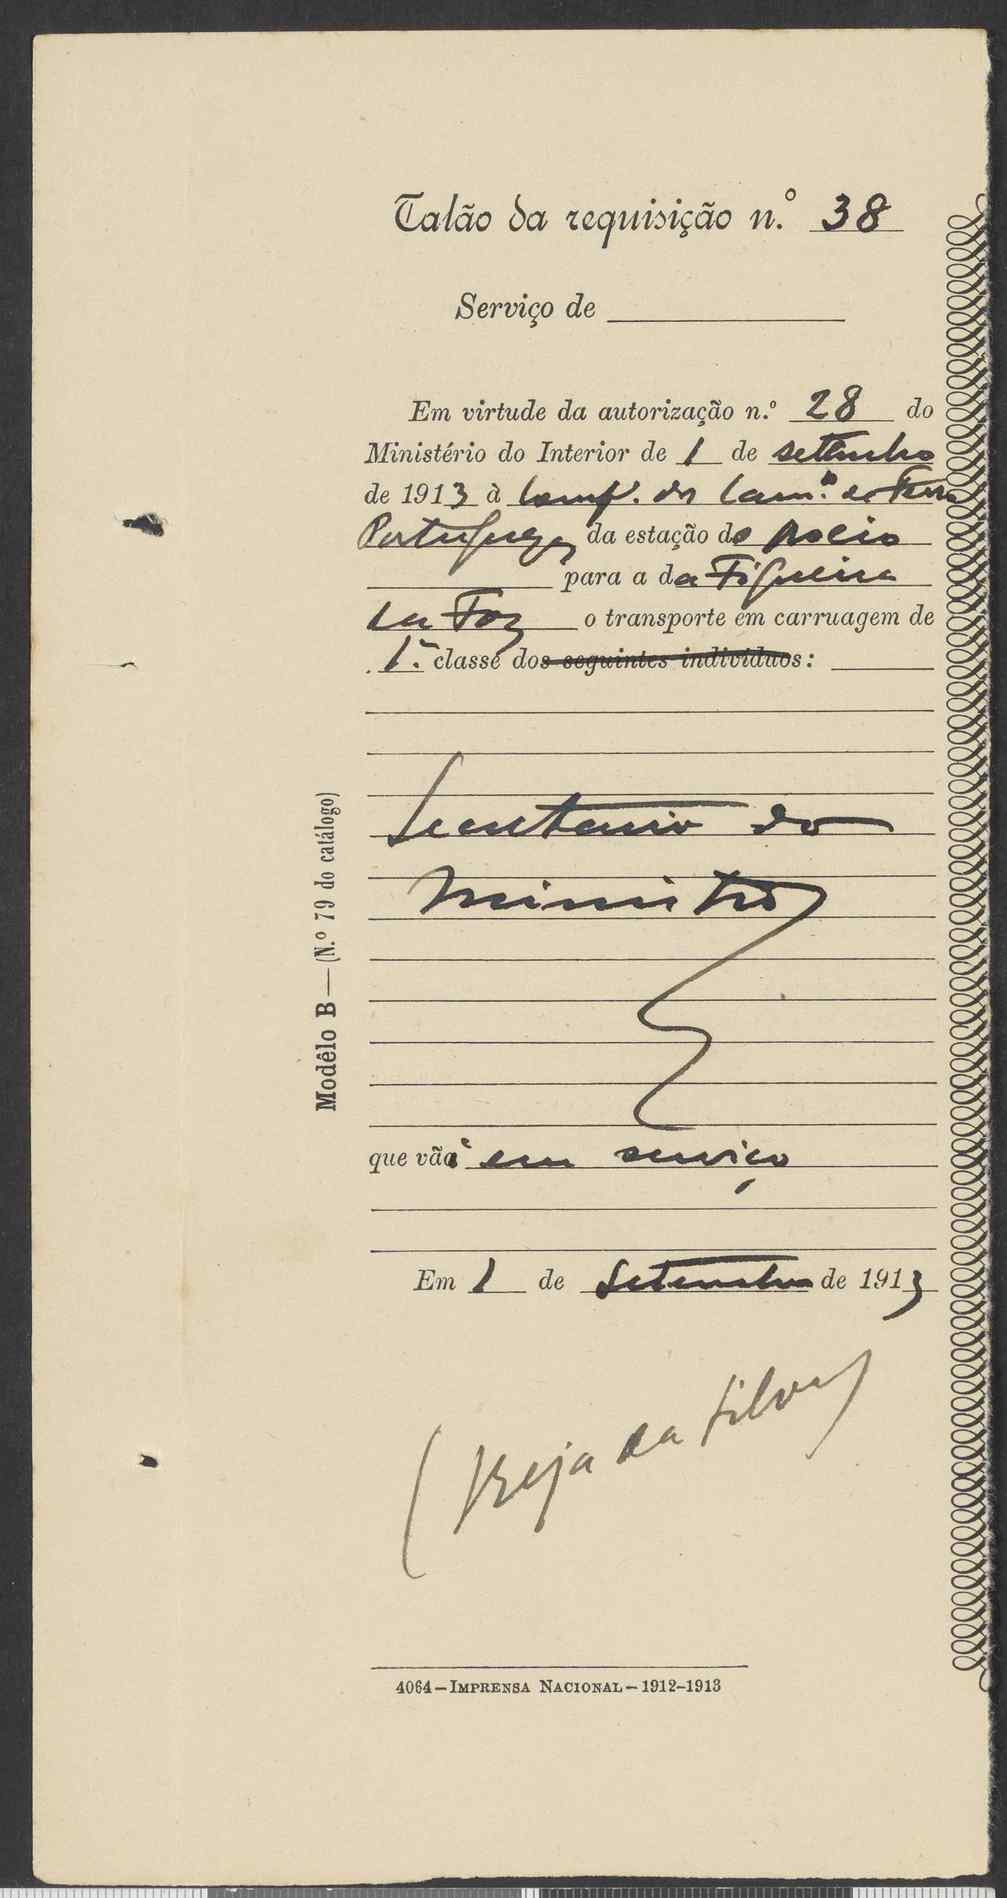 Talão da requisição n.º 38
Serviço de
Em virtude da autorização n.º 28 do
Ministério do Interior de 1 de setembro
de 1913 à Comp. dos Cam.os de Ferro
Portugueses da estação do Rocio
para a da Figueira
da Foz o transporte em carruagem de
1.ª classe dos seguintes individuos:
Secretario do
Ministro
que vão em serviço
Em 1 de Setembro de 1913
da Silva)
4064-IMPRENSA NACIONAL-1912-1913
Modêlo B—(N.º 79 do catálogo)